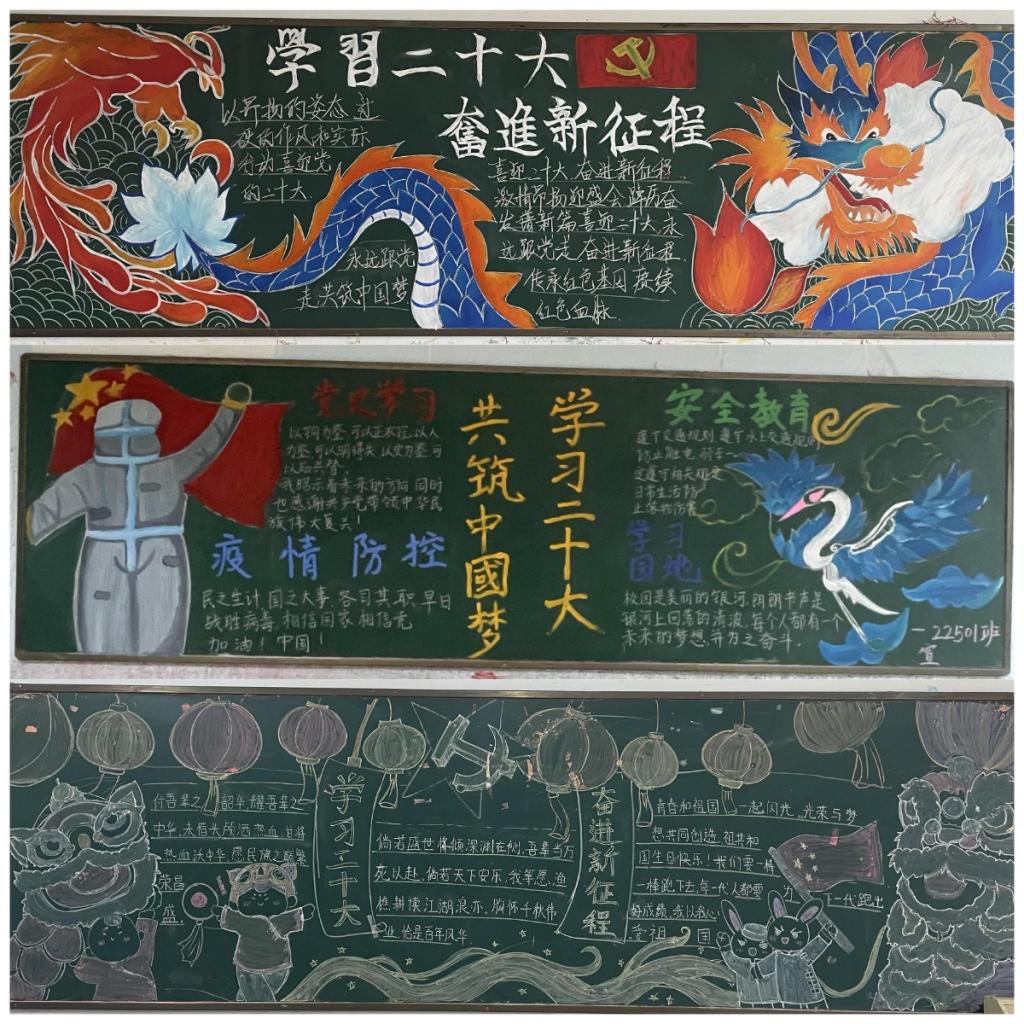 學習二十大
奮進新征程
以昂扬的姿态、过
硬的作风和实际
行动喜迎党
的二十大.
永远跟党
走共筑中国梦
喜迎二十大奋进新征程.
激情昂扬迎盛会踔厉奋
发谱新篇喜迎二十大永
远跟党走奋进新征程.
传承红色基因赓续
红色血脉.
党史学习
以铜为鉴,可以正衣冠,以人
为鉴,可以明得失,以史为鉴,可
以知兴替.
我昭示着未来的方向,同时
也感谢共产党带领中华民
族伟大复兴!
疫情防控
民之生计,国之大事,各司其职,早日
战胜病毒,相信国家,相信党
加油!中国!
共筑中國梦
学习二十大
安全教育
遵守交通规则,遵守水上交通规则
防止触电,骑车一
定遵守相关规定
日常生活防
止落物伤害
学习
园地
校园是美丽的银河,朗朗书声是
银河上回荡的清波,每个人都有一个
未来的梦想,并为之奋斗.
-22501班
宣
付吾辈之韶华耀吾辈之
中华,未惜头颅洒热血,甘将
热血沃中华,愿民族之
荣昌
盛
学习二十大
倘若盛世将倾,深渊在侧,吾辈当万
死以赴,倘若天下安乐,我等愿渔
樵耕读江湖浪亦,胸怀千秋伟
业,恰是百年风华
奋进新征程
青春和祖国一起闪光,光荣与梦
想共同创造,祖共和
国生日快乐!我们要一棒
一棒跑下去,每一代人都要为下一代跑出
好成绩,我以我心
爱祖国